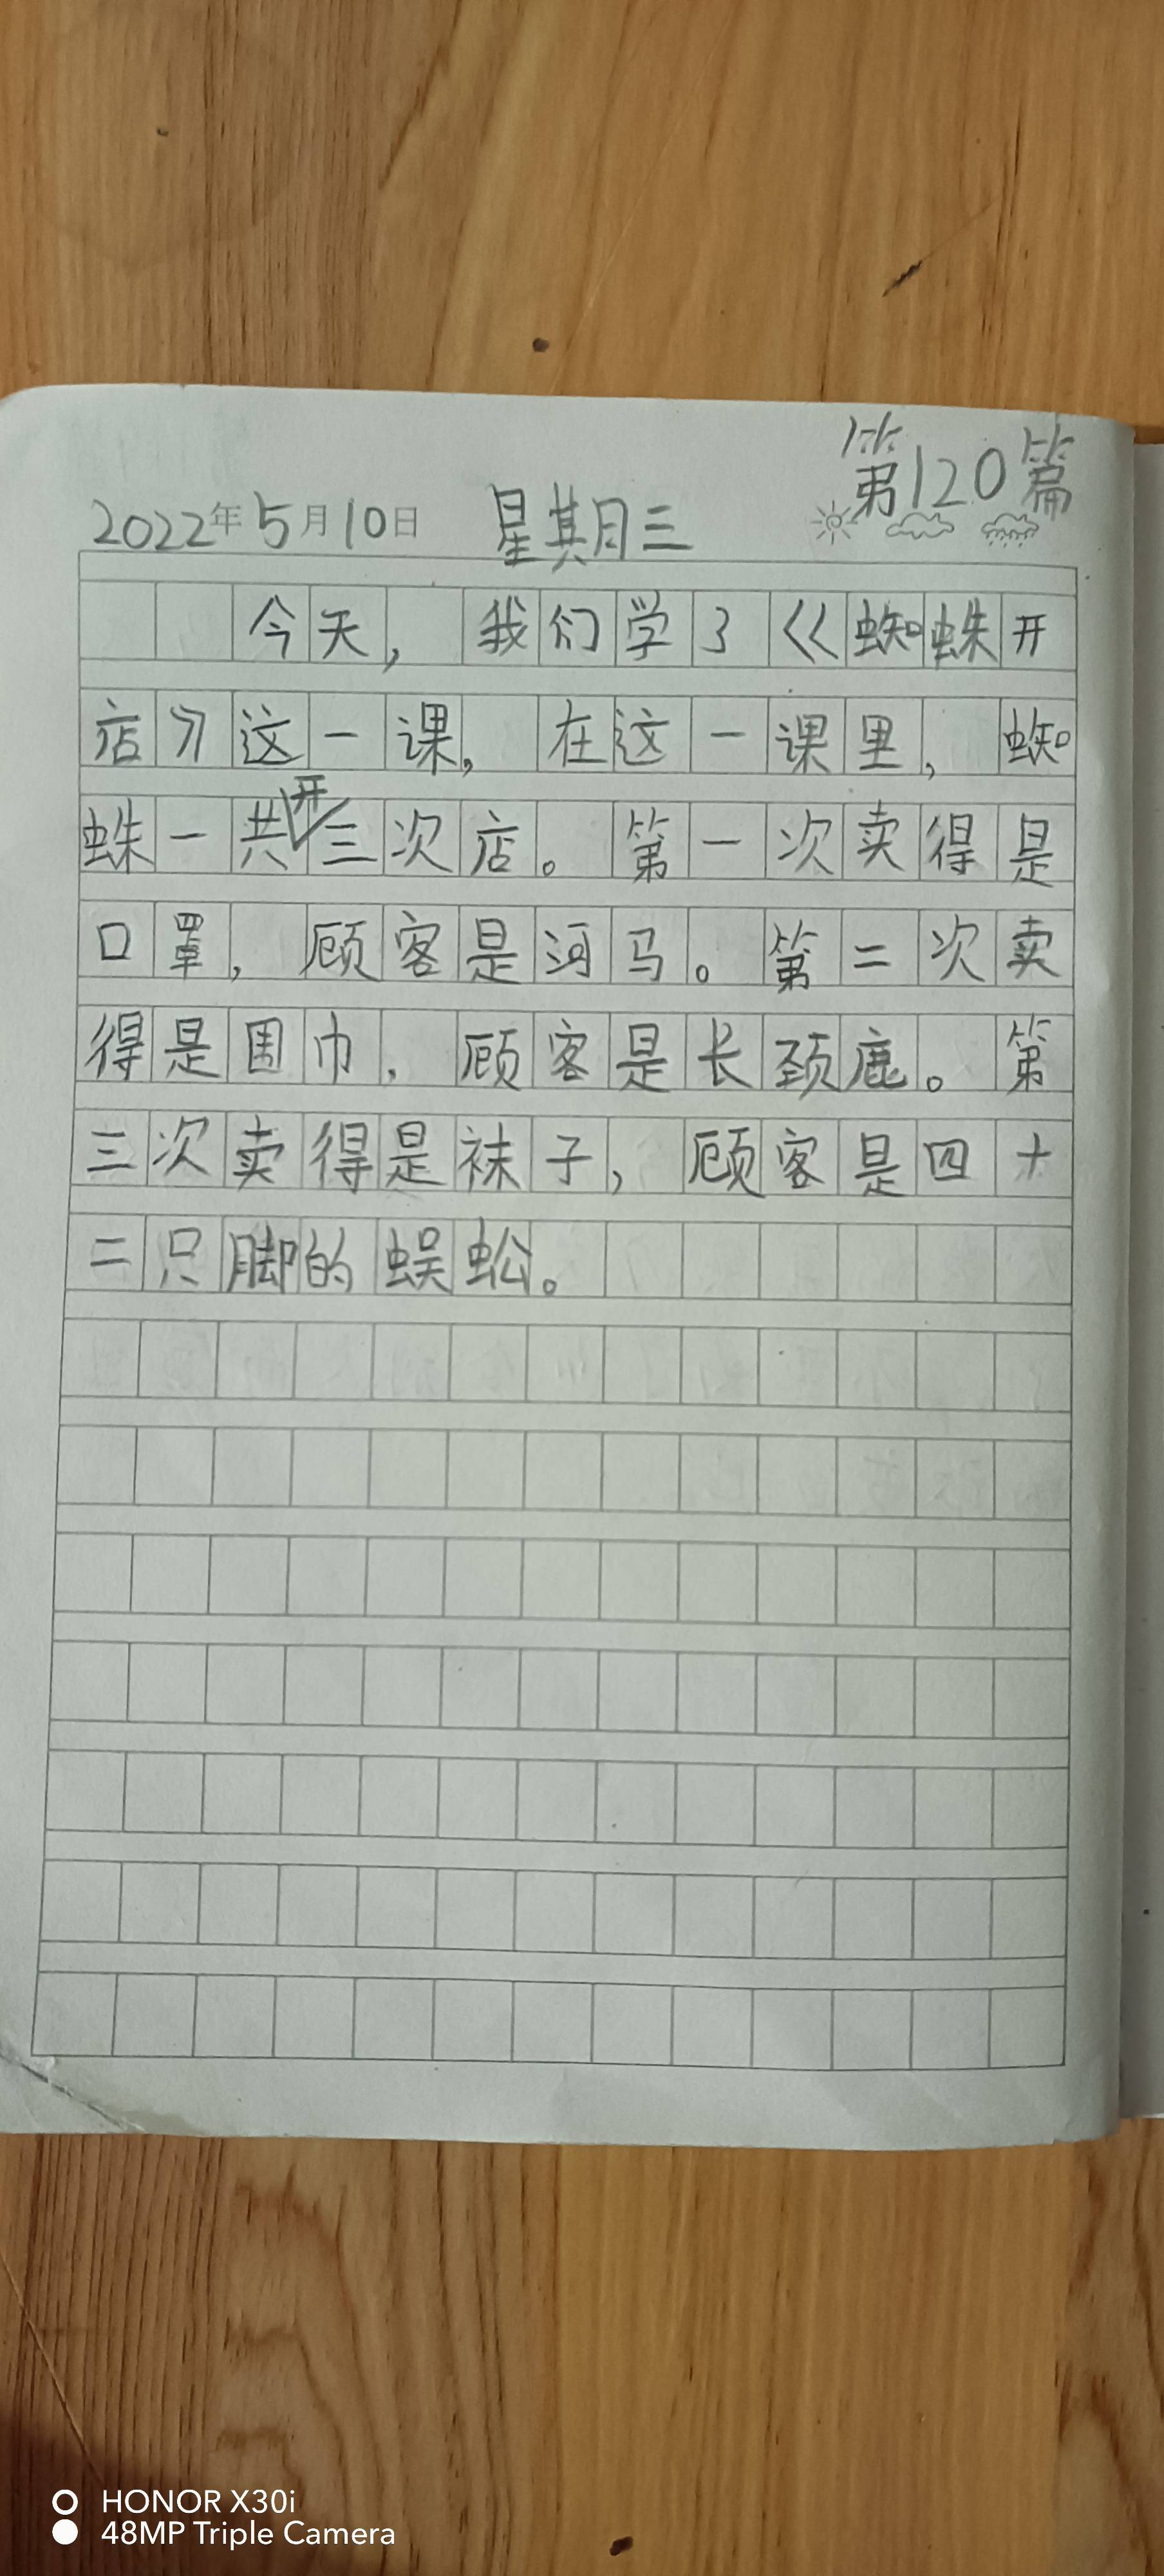 第120篇
2022年5月10日 星期三
今天，我们学了《蜘蛛开
店》这一课，在这一课里，蜘
蛛一共开三次店。第一次卖得是
口罩，顾客是河马。第二次卖
得是围巾，顾客是长颈鹿。第
三次卖得是袜子，顾客是四十
二只脚的蜈蚣。
HONOR X30i
48MP Triple Camera